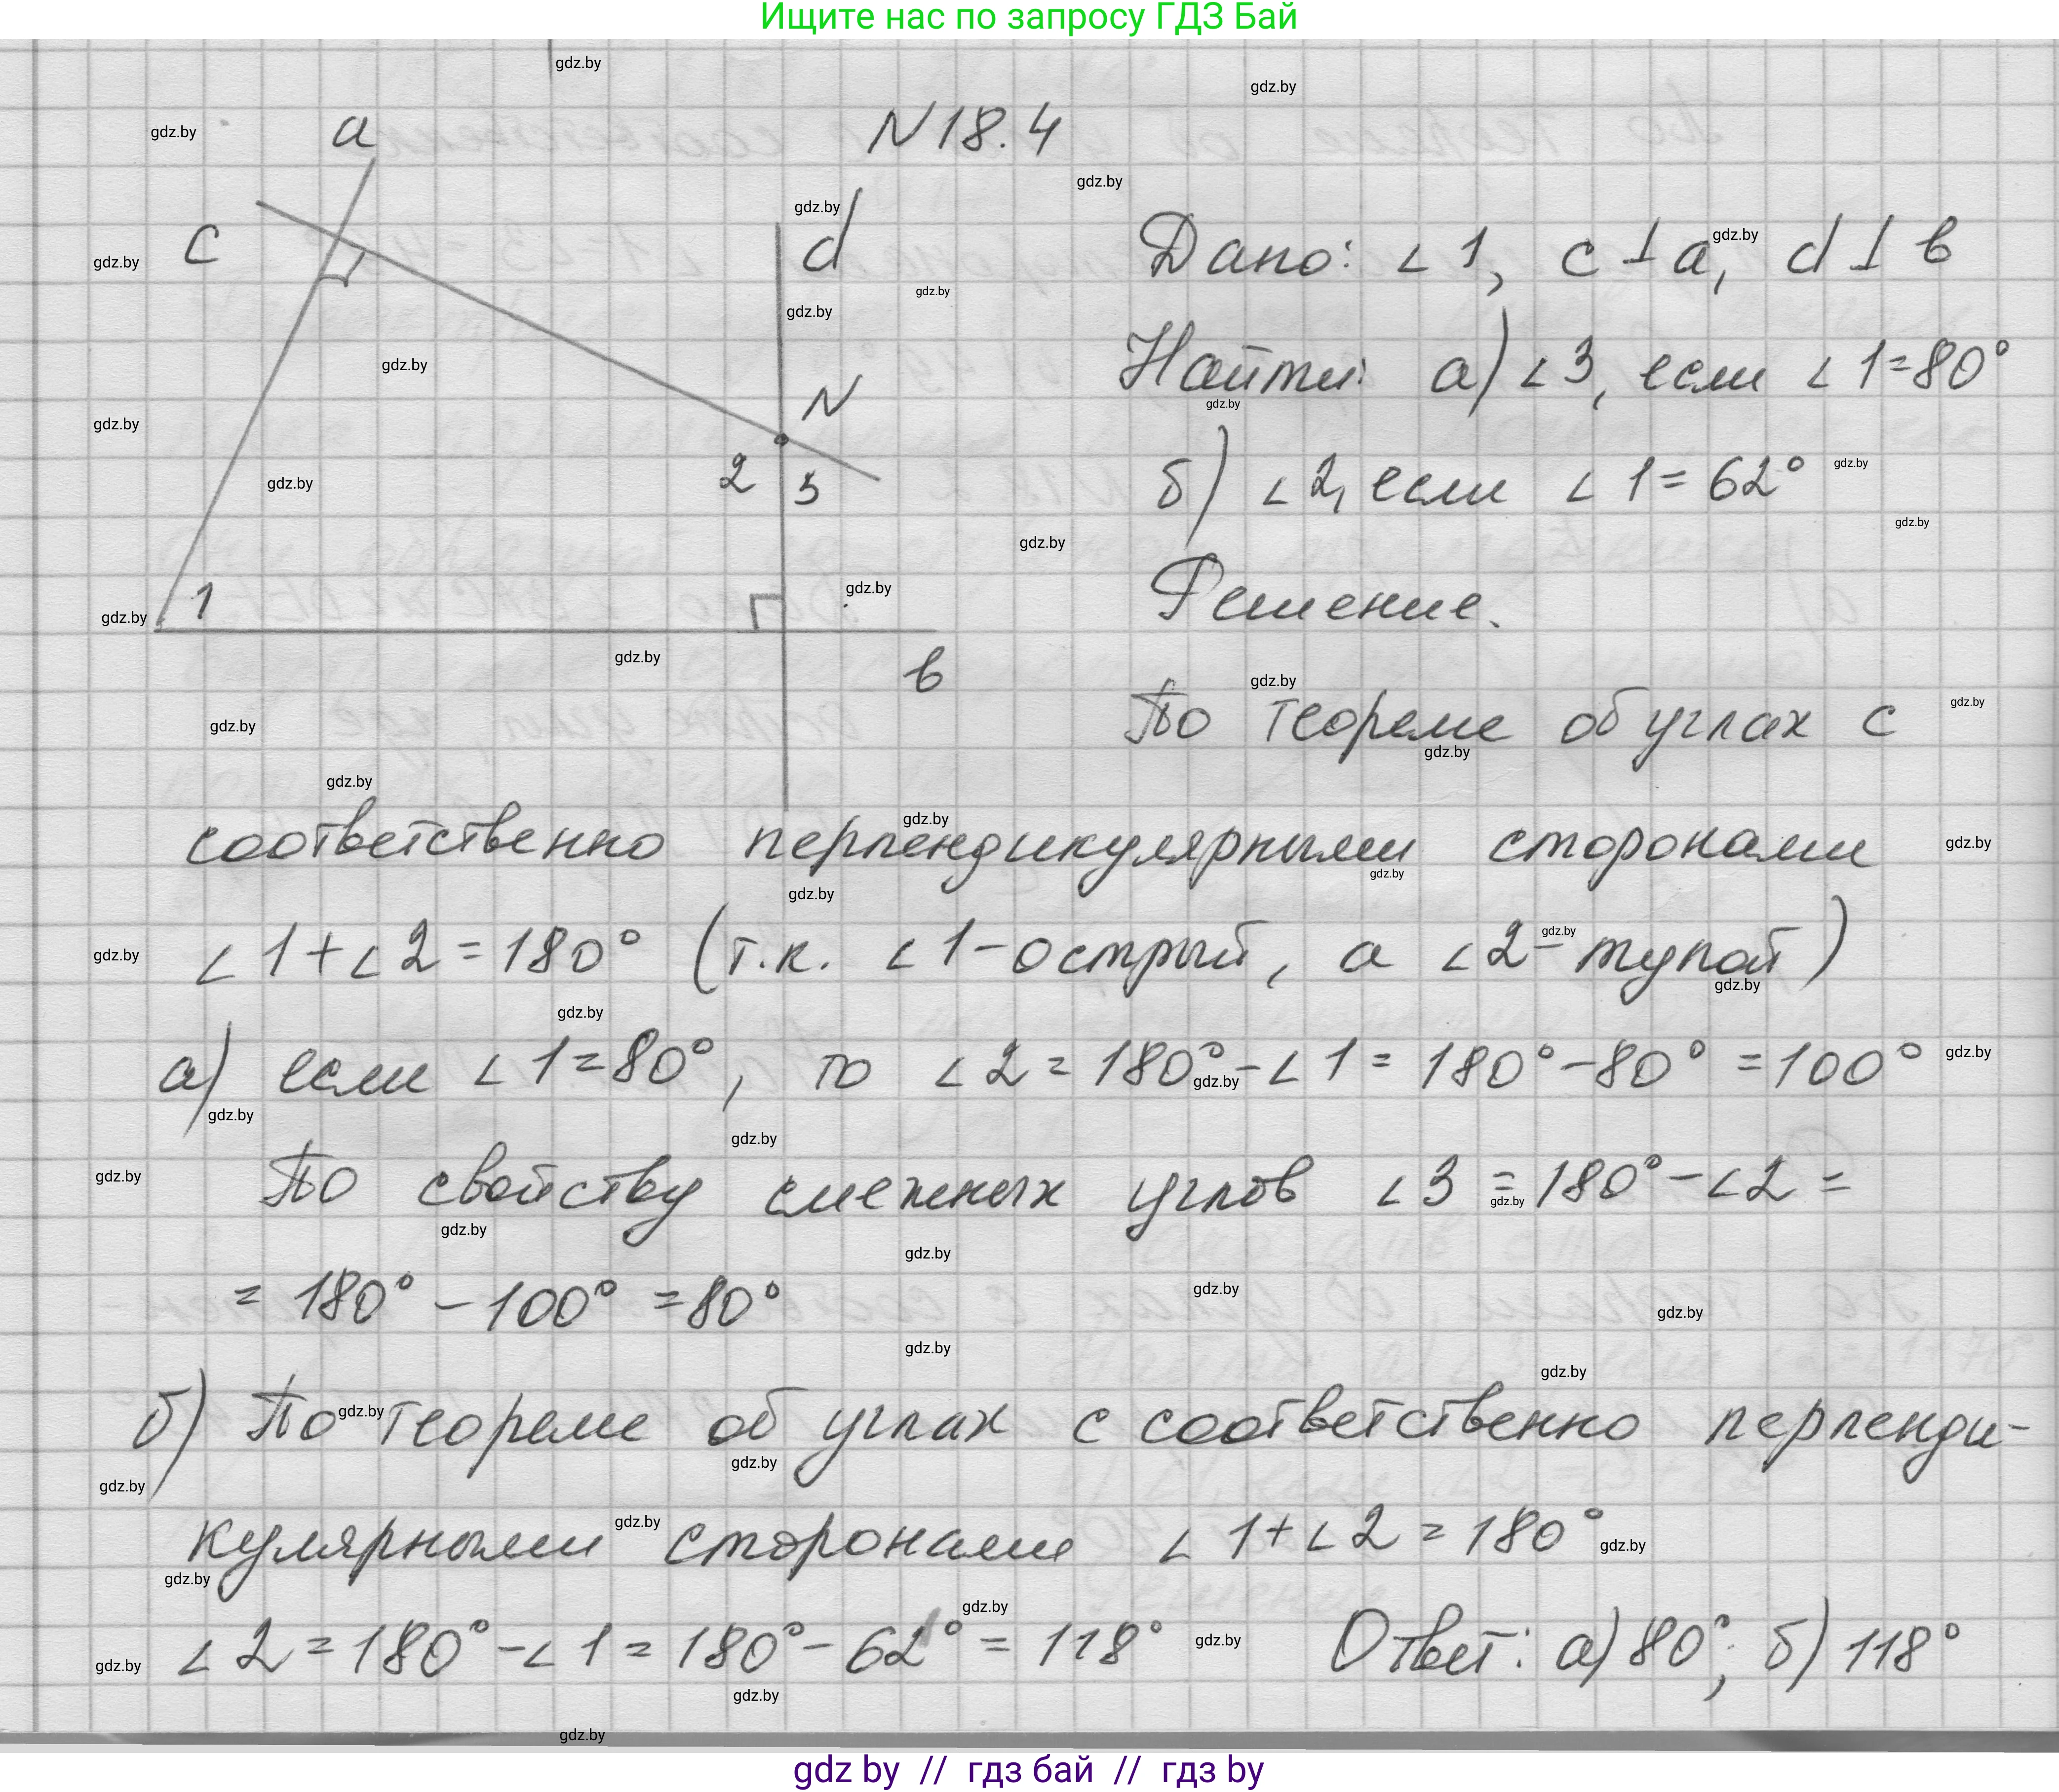 Ищите нас по запросу ГДЗ Бай
N18.4
a
c
d
N
2 3
1
в
Дано: ∠1, c⊥a, d⊥в
Найти: а) ∠3, если ∠1=80°
б) ∠2, если ∠1=62°
Решение.
По теореме об углах с
соответственно перпендикулярными сторонами
∠1+∠2=180° (т.к. ∠1-острый, а ∠2-тупой)
а) если ∠1=80°, то ∠2=180°-∠1=180°-80°=100°
По свойству смежных углов ∠3=180°-∠2=
=180°-100°=80°
б) По теореме об углах с соответственно перпенди-
кулярными сторонами ∠1+∠2=180°
∠2=180°-∠1=180°-62°=118° Ответ: а) 80°; б) 118°
gdz by // гдз бай // гдз by